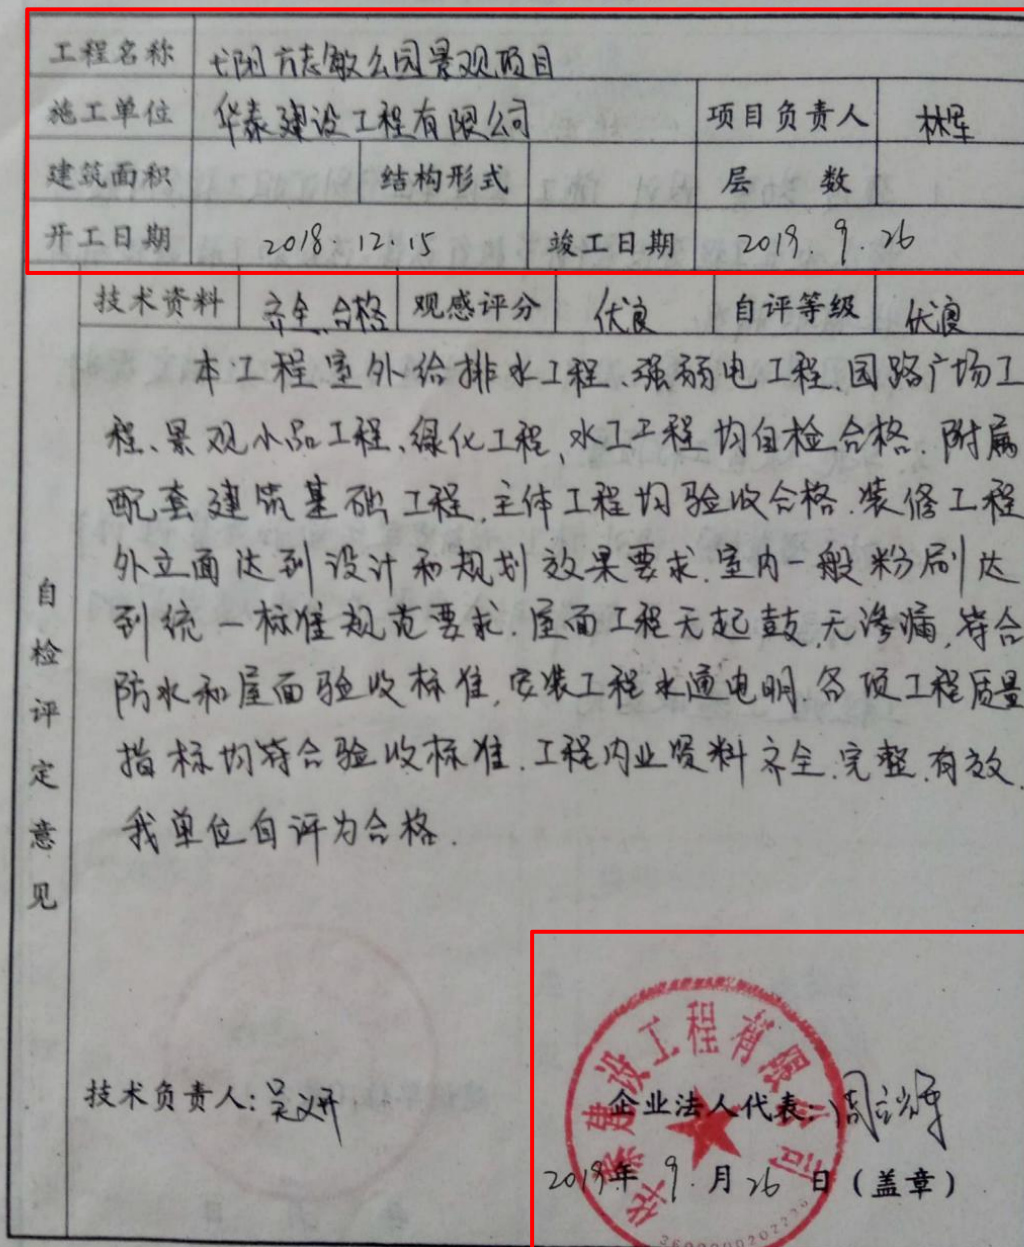 工程名称 弋阳方志敏公园景观项目
施工单位 华泰建设工程有限公司 项目负责人 林军
建筑面积 结构形式 层数
开工日期 2018.12.15 竣工日期 2019 9.26
技术资料 齐全.合格 观感评分 优良 自评等级 优良
自检评定意见
本工程室外给排水工程、强弱电工程、园路广场工
程、景观小品工程、绿化工程、水工工程均自检合格.附属
配套建筑基础工程.主体工程均验收合格.装修工程
外立面达到设计和规划效果要求.室内一般粉刷达
到统一标准规范要求.屋面工程无起鼓.无渗漏,符合
防水和屋面验收标准,安装工程水通电明.各项工程质量
指标均符合验收标准.工程内业资料齐全.完整.有效.
我单位自评为合格.
华泰建设工程有限公司
技术负责人: 企业法人代表:
2019年 9.月26 日(盖章)